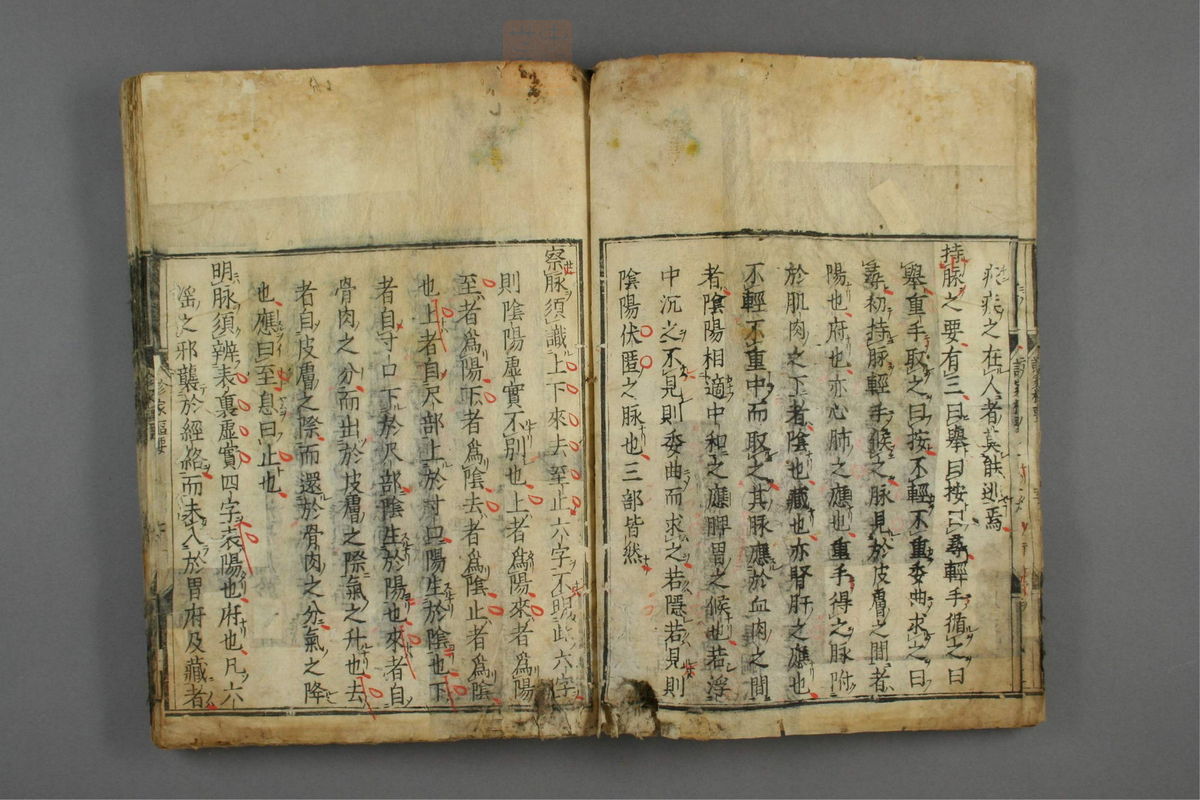 疾之在人者莫能逃焉
持脉之要有三曰舉曰按曰尋輕手循之曰
舉重手取之曰按不輕不重委曲求之曰
尋初持脉輕手候之脉見於皮膚之間者
陽也府也亦心肺之應也重手得之脉附
於肌肉之下者陰也藏也亦腎肝之應也
不輕不重中而取之其脉應於血肉之間
者陰陽相適中和之應脾胃之候也若浮
中沉之不見則委曲而求之若隱若見則
陰陽伏匿之脉也三部皆然
察脉須識上下來去至止六字不明此六字
則陰陽虛實不別也上者爲陽來者爲陽
至者爲陽下者爲陰去者爲陰止者爲陰
也上者自尺部上於寸口陽生於陰也下
者自寸口下於尺部陰生於陽也來者自
骨肉之分而出於皮膚之際氣之升也去
者自皮膚之際而還於骨肉之分氣之降
也應曰至息曰止也
明脉須辨表裏虛實四字表陽也府也凡六
淫之邪襲於經絡而未入於胃府及藏者
診家樞要